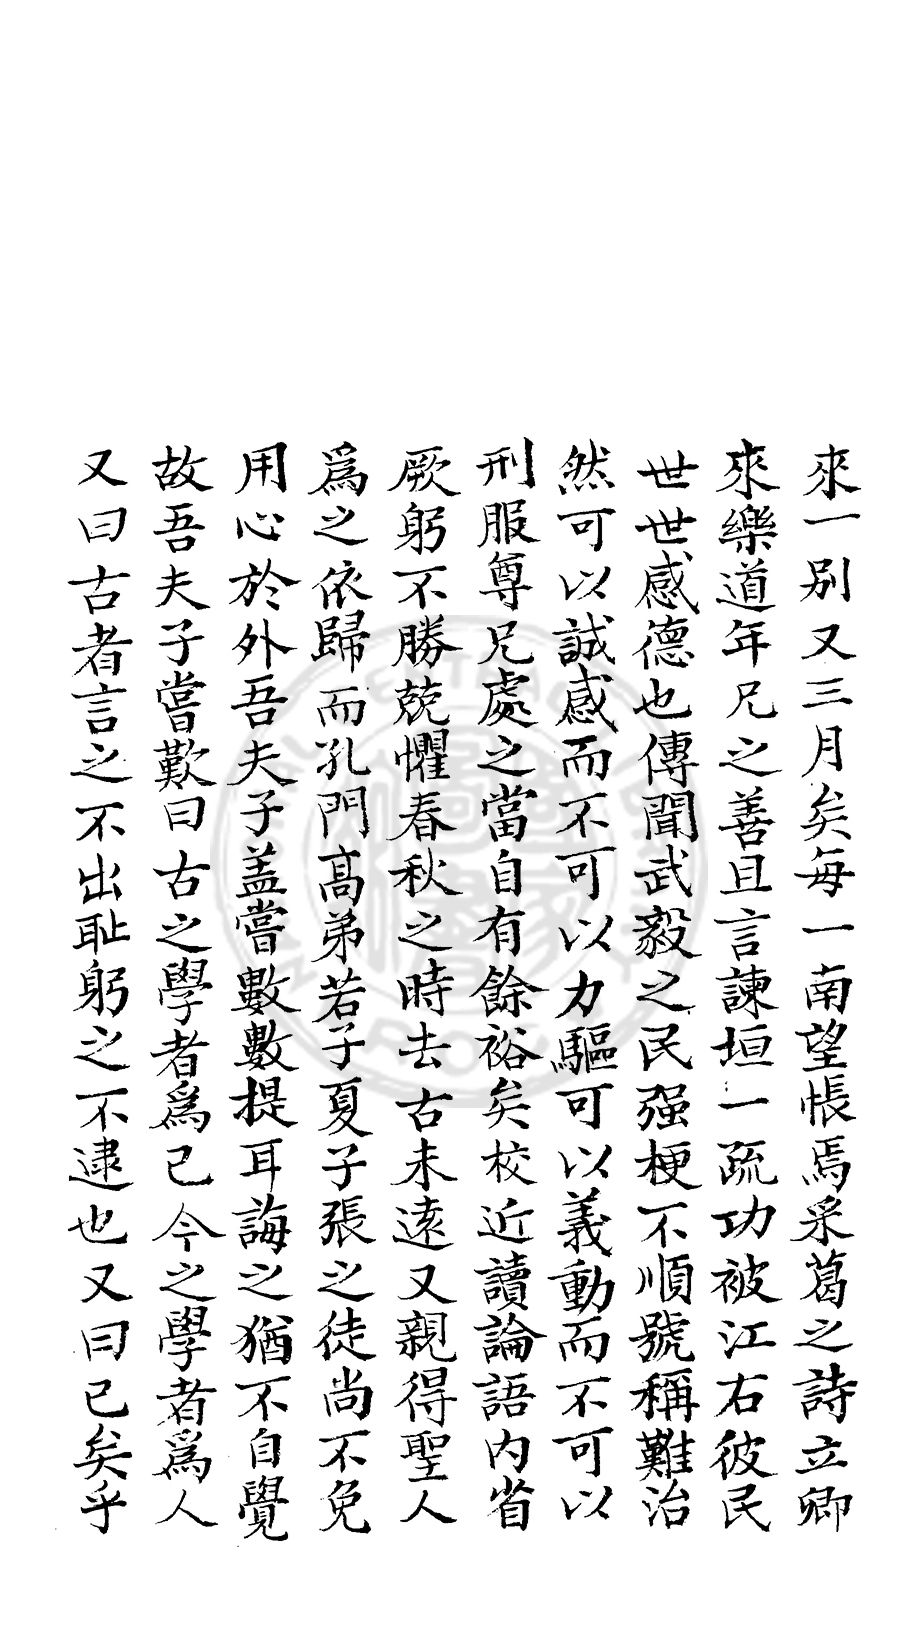 來一別又三月矣每一南望悵焉采葛之詩立卿
來樂道年兄之善且言諫垣一疏功被江右彼民
世世感德也傳聞武毅之民强梗不順號稱難治
然可以誠感而不可以力驅可以義動而不可以
刑服尊兄處之當自有餘裕矣校近讀論語内省
厥躬不勝兢懼春秋之時去古未遠又親得聖人
爲之依歸而孔門高弟若子夏子張之徒尚不免
用心於外吾夫子盖嘗數數提耳誨之猶不自覺
故吾夫子嘗歎曰古之學者爲己今之學者爲人
又曰古者言之不出耻躬之不逮也又曰已矣乎